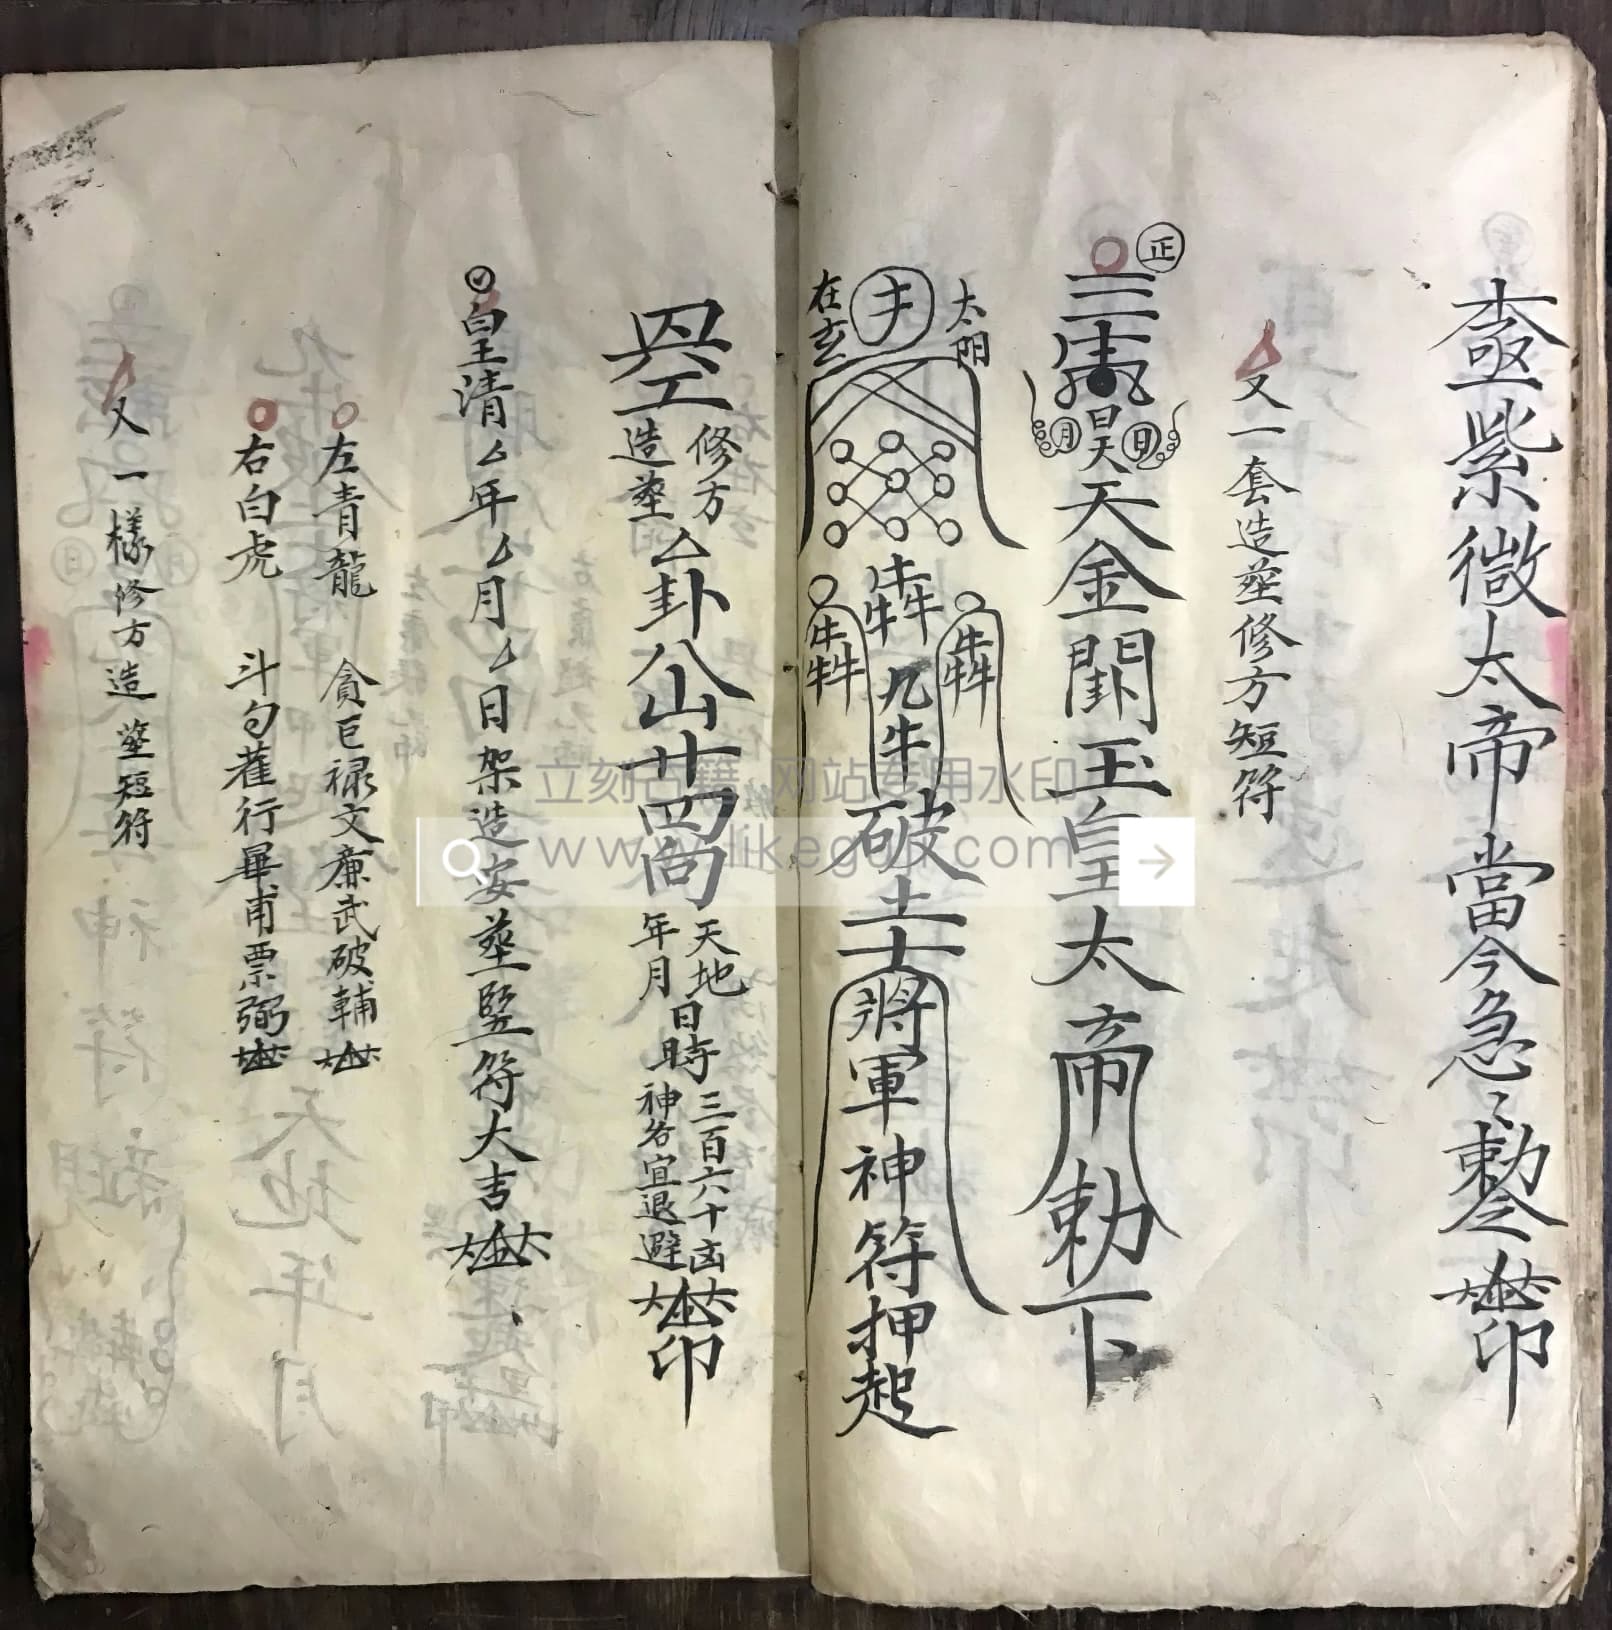 紫微大帝當今急〻勅令 印
又一套造葬修方短符
正
三 昊天金闕玉皇太帝勅下
日 月
太陽
在玄
犇 犇 犇 九牛破土 將軍神符押起
修方
造葬
厶卦公山廿四向
天地
年月
日時
三百六十凶
神名宜退避
印
皇清厶年厶月厶日架造安葬竪符大吉
左青龍 貪巨禄文廉武破輔
右白虎 斗句雚行畢甫票弼
又一樣修方造葬短符
立刻古籍 网站专用水印
www.likeguji.com